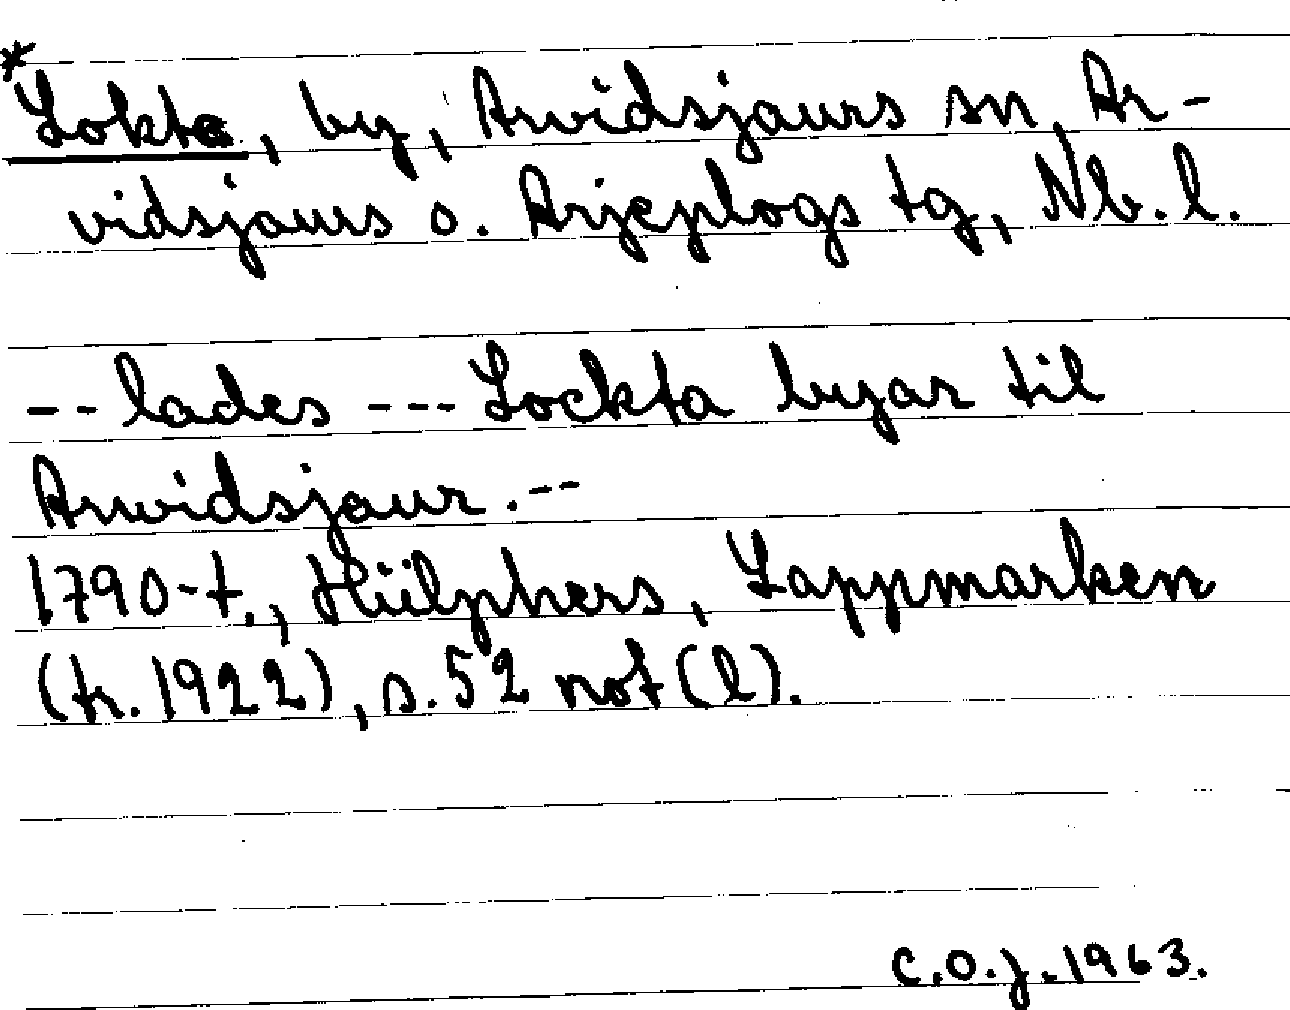 *Lokta, by, Arvidsjaurs sn, Ar-
vidsjaurs o. Arjeplogs tg, Nb.l.
-- lades --- Lockta byar til
Arwidsjaur.--
1790-t., Hülphers, Lappmarken
(tr. 1922), s. 52 not (l).
C.O.J. 1963.